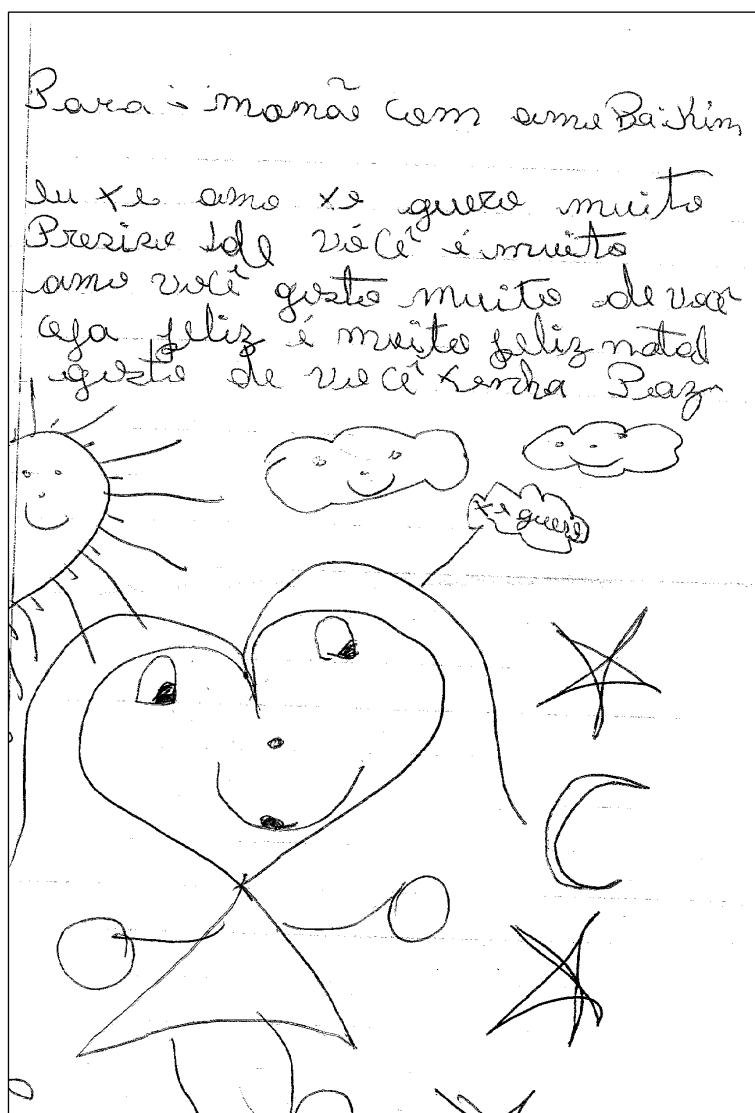 Para: momãe com amo
eu te amo te quero muito
Presizo de você é muito
amo você gosto muito de voce
ceja feliz é muito feliz natal
gosto de você tenha Paz
te quero